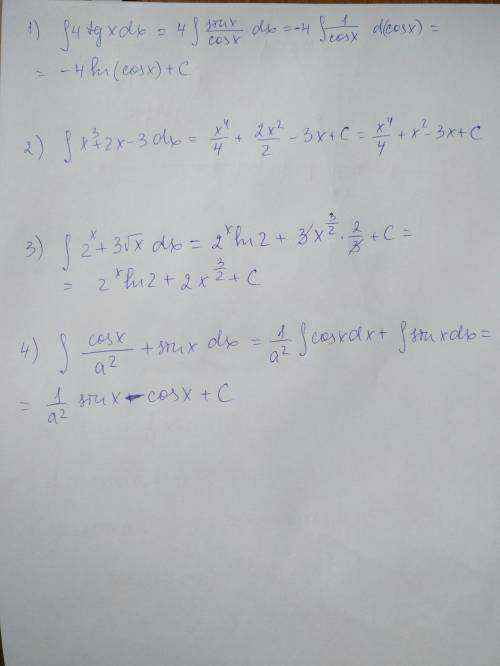 1) ∫4 tg x dx = 4 ∫ sin x / cos x dx = -4 ∫ 1 / cos x d(cos x) =
= -4 ln(cos x) + C
2) ∫ x³ + 2x - 3 dx = x⁴/4 + 2x²/2 - 3x + C = x⁴/4 + x² - 3x + C
3) ∫ 2ˣ + 3√x dx = 2ˣ ln 2 + 3 x^(3/2) · 2/3 + C =
= 2ˣ ln 2 + 2x^(3/2) + C
4) ∫ cos x / a² + sin x dx = 1/a² ∫ cos x dx + ∫ sin x dx =
= 1/a² sin x - cos x + C